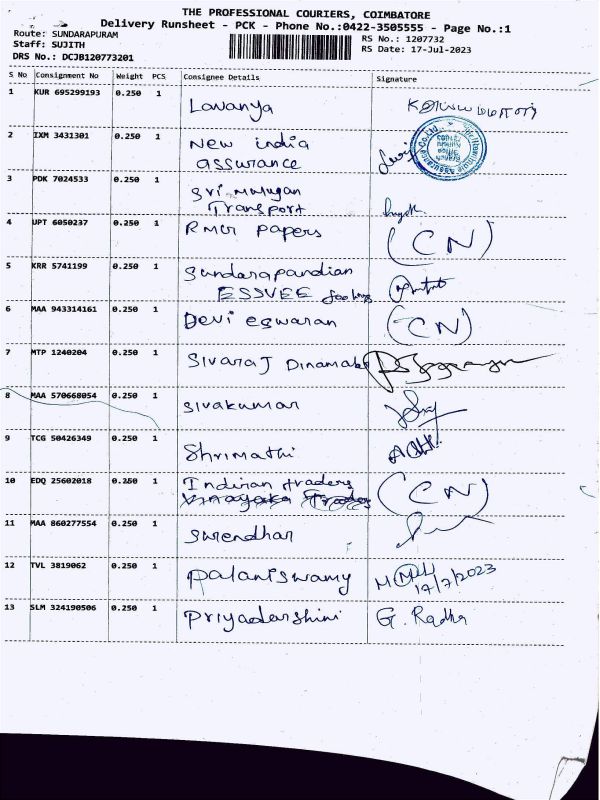 THE PROFESSIONAL COURIERS, COIMBATORE
Delivery Runsheet - PCK - Phone No.:0422-3505555 - Page No.:1
Route: SUNDARAPURAM
Staff: SUJITH
DRS No.: DCJB120773201
RS No.: 1207732
RS Date: 17-Jul-2023
S No Consignment No Weight PCS Consignee Details Signature
1 KUR 695299193 0.250 1 Lavanya
2 IXM 3431301 0.250 1 New india
assurance
3 PDK 7024533 0.250 1 Sri Murugan
Transport
4 UPT 6050237 0.250 1 RMGR papers (CN)
5 KRR 5741199 0.250 1 Sundarapandian
ESSVEE
6 MAA 943314161 0.250 1 Devi eswaran (CN)
7 MTP 1240204 0.250 1 Sivaraj Dinamalar
8 MAA 570668054 0.250 1 Sivakumar
9 TCG 50426349 0.250 1 Shrimathi
10 EDQ 25602018 0.250 1 Indiran traders (CN)
Vinayaka Traders
11 MAA 860277554 0.250 1 Surendhar
12 TVL 3819062 0.250 1 Palaniswamy 17/7/2023
13 SLM 324190506 0.250 1 Priyadarshini G. Radha